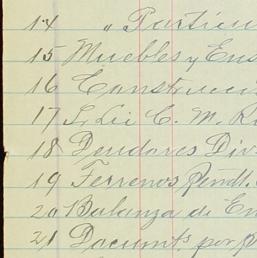 14 " Particu
15 Muebles y Ens
16 Construcci
17 S. Luis C. M. R
18 Deudores Div
19 Terrenos Pendt.
20 Balanza de En
21 Documts por P